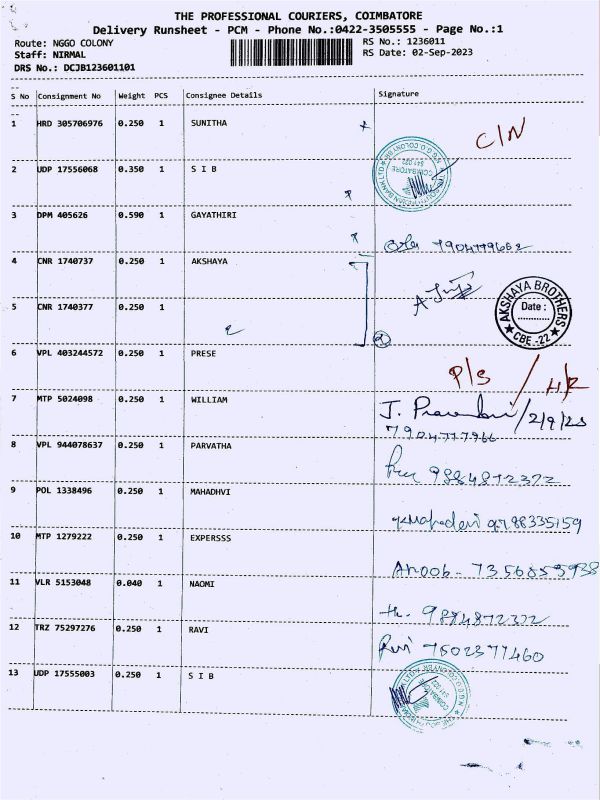 THE PROFESSIONAL COURIERS, COIMBATORE
Delivery Runsheet - PCM - Phone No.:0422-3505555 - Page No.:1
Route: NGGO COLONY RS No.: 1236011
Staff: NIRMAL RS Date: 02-Sep-2023
DRS No.: DCJB123601101
S No Consignment No Weight PCS Consignee Details Signature
1 HRD 305706976 0.250 1 SUNITHA C/N
2 UDP 17556068 0.350 1 S I B
COIMBATORE
3 DPM 405626 0.590 1 GAYATHIRI
4 CNR 1740737 0.250 1 AKSHAYA
AKSHAYA BROTHERS
Date :
CBE.-22
5 CNR 1740377 0.250 1
6 VPL 403244572 0.250 1 PRESE P/S
7 MTP 5024098 0.250 1 WILLIAM J. 2/9/23
8 VPL 944078637 0.250 1 PARVATHA 9884872372
9 POL 1338496 0.250 1 MAHADHVI
10 MTP 1279222 0.250 1 EXPERSSS Anoob-
11 VLR 5153048 0.040 1 NAOMI 9884872372
12 TRZ 75297276 0.250 1 RAVI Ravi 7502377460
13 UDP 17555003 0.250 1 S I B